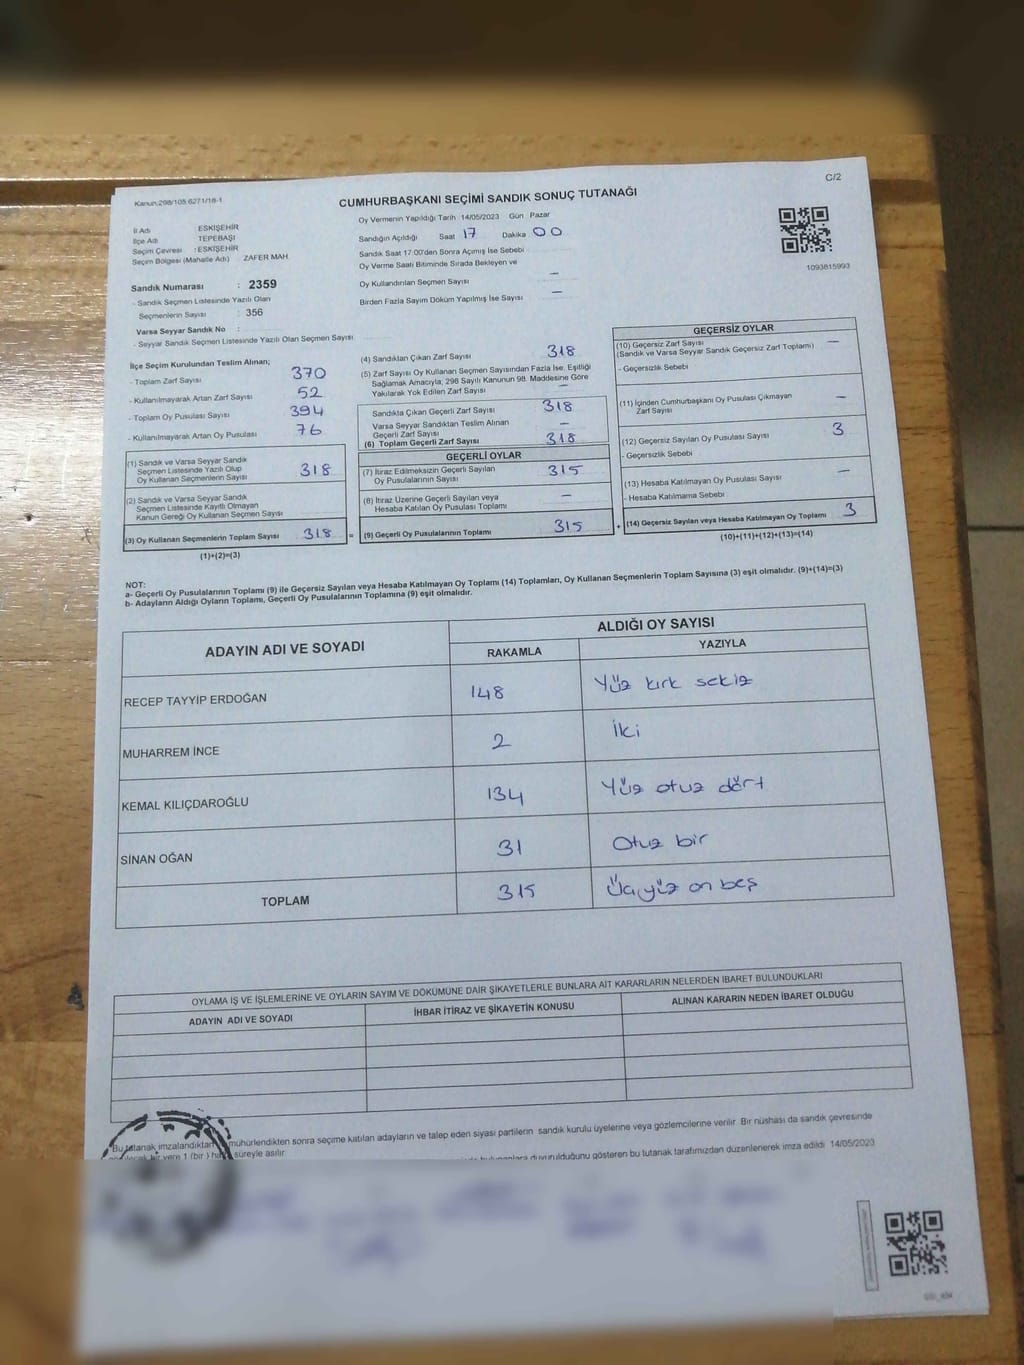 C/2
Kanun:298/105,6271/18-1
CUMHURBAŞKANI SEÇİMİ SANDIK SONUÇ TUTANAĞI
İl Adı ESKİŞEHİR
İlçe Adı TEPEBAŞI
Seçim Çevresi : ESKİŞEHİR
Seçim Bölgesi (Mahalle Adı) ZAFER MAH.
Sandık Numarası : 2359
- Sandık Seçmen Listesinde Yazılı Olan
Seçmenlerin Sayısı : 356
Varsa Seyyar Sandık No :
- Seyyar Sandık Seçmen Listesinde Yazılı Olan Seçmen Sayısı
Oy Vermenin Yapıldığı Tarih 14/05/2023 Gün Pazar
Sandığın Açıldığı Saat 17 Dakika 00
Sandık Saat 17:00'den Sonra Açımış İse Sebebi
Oy Verme Saati Bitiminde Sırada Bekleyen ve
Oy Kullandırılan Seçmen Sayısı –
Birden Fazla Sayım Döküm Yapılmış İse Sayısı –
1093815993
İlçe Seçim Kurulundan Teslim Alınan;
- Toplam Zarf Sayısı 370
- Kullanılmayarak Artan Zarf Sayısı 52
- Toplam Oy Pusulası Sayısı 394
- Kullanılmayarak Artan Oy Pusulası 76
(1) Sandık ve Varsa Seyyar Sandık
Seçmen Listesinde Yazılı Olup
Oy Kullanan Seçmenlerin Sayısı 318
(2) Sandık ve Varsa Seyyar Sandık
Seçmen Listesinde Kayıtlı Olmayan
Kanun Gereği Oy Kullanan Seçmen Sayısı
(3) Oy Kullanan Seçmenlerin Toplam Sayısı 318 =
(1)+(2)=(3)
(4) Sandıktan Çıkan Zarf Sayısı 318
(5) Zarf Sayısı Oy Kullanan Seçmen Sayısından Fazla İse, Eşitliği
Sağlamak Amacıyla; 298 Sayılı Kanunun 98. Maddesine Göre
Yakılarak Yok Edilen Zarf Sayısı –
Sandıkta Çıkan Geçerli Zarf Sayısı 318
Varsa Seyyar Sandıktan Teslim Alınan
Geçerli Zarf Sayısı –
(6) Toplam Geçerli Zarf Sayısı 318
GEÇERLİ OYLAR
(7) İtiraz Edilmeksizin Geçerli Sayılan
Oy Pusulalarının Sayısı 315
(8) İtiraz Üzerine Geçerli Sayılan veya
Hesaba Katılan Oy Pusulası Toplamı –
(9) Geçerli Oy Pusulalarının Toplamı 315 +
GEÇERSİZ OYLAR
(10) Geçersiz Zarf Sayısı
(Sandık ve Varsa Seyyar Sandık Geçersiz Zarf Toplamı) –
- Geçersizlik Sebebi
(11) İçinden Cumhurbaşkanı Oy Pusulası Çıkmayan
Zarf Sayısı –
(12) Geçersiz Sayılan Oy Pusulası Sayısı 3
- Geçersizlik Sebebi
(13) Hesaba Katılmayan Oy Pusulası Sayısı –
- Hesaba Katılmama Sebebi
(14) Geçersiz Sayılan veya Hesaba Katılmayan Oy Toplamı 3
(10)+(11)+(12)+(13)=(14)
NOT:
a- Geçerli Oy Pusulalarının Toplamı (9) ile Geçersiz Sayılan veya Hesaba Katılmayan Oy Toplamı (14) Toplamları, Oy Kullanan Seçmenlerin Toplam Sayısına (3) eşit olmalıdır. (9)+(14)=(3)
b- Adayların Aldığı Oyların Toplamı, Geçerli Oy Pusulalarının Toplamına (9) eşit olmalıdır.
ADAYIN ADI VE SOYADI ALDIĞI OY SAYISI
RAKAMLA YAZIYLA
RECEP TAYYİP ERDOĞAN 148 Yüz kırk sekiz
MUHARREM İNCE 2 İki
KEMAL KILIÇDAROĞLU 134 Yüz otuz dört
SİNAN OĞAN 31 Otuz bir
TOPLAM 315 Üçyüz on beş
OYLAMA İŞ VE İŞLEMLERİNE VE OYLARIN SAYIM VE DÖKÜMÜNE DAİR ŞİKAYETLERLE BUNLARA AİT KARARLARIN NELERDEN İBARET BULUNDUKLARI
ADAYIN ADI VE SOYADI İHBAR İTİRAZ VE ŞİKAYETİN KONUSU ALINAN KARARIN NEDEN İBARET OLDUĞU
Bu tutanak imzalandıktan mühürlendikten sonra seçime katılan adayların ve talep eden siyasi partilerin sandık kurulu üyelerine veya gözlemcilerine verilir. Bir nüshası da sandık çevresinde
bir yere 1 (bir) süreyle asılır.
duyurulduğunu gösteren bu tutanak tarafımızdan düzenlenerek imza edildi 14/05/2023